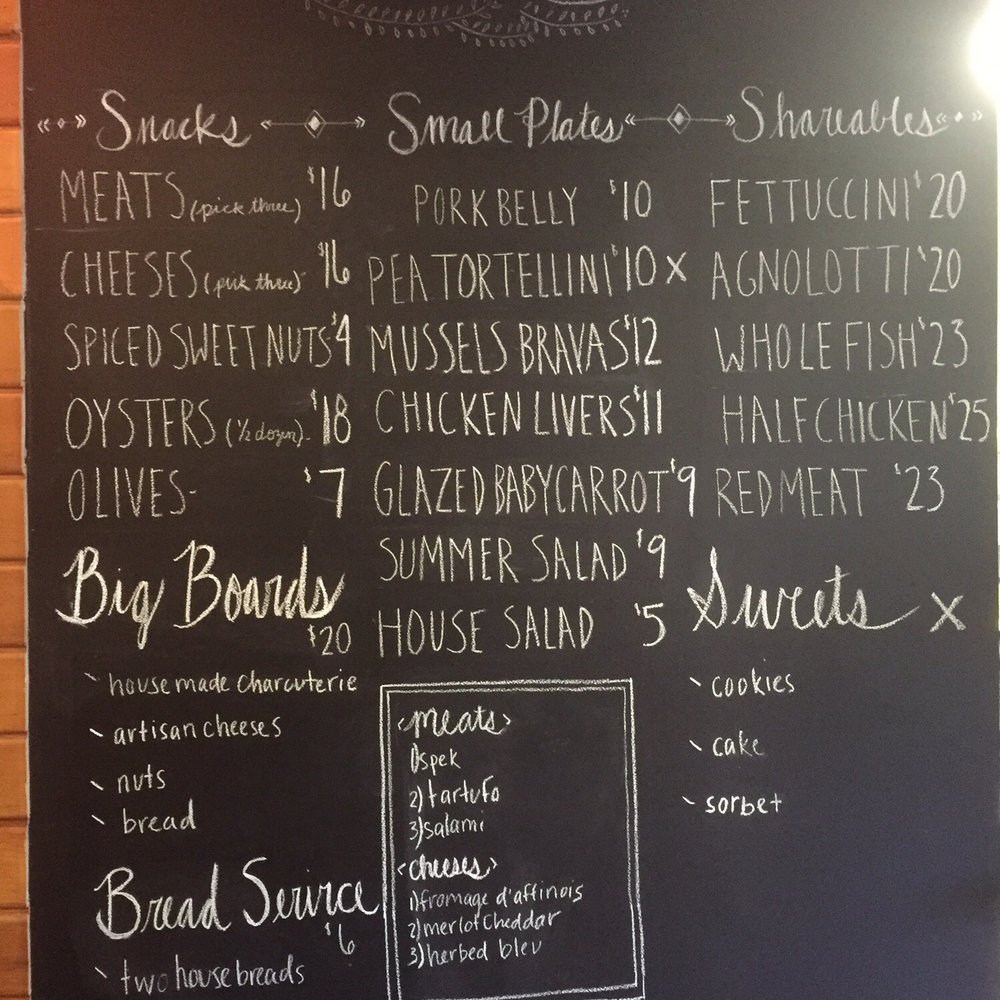 Snacks
MEATS (pick three) $16
CHEESES (pick three) $16
SPICED SWEET NUTS $4
OYSTERS (1/2 dozen) - $18
OLIVES - $7
Big Boards
$20
house made charcuterie
artisan cheeses
nuts
bread
Bread Servirce
$6
two house breads
Small Plates
PORK BELLY $10
PEA TORTELLINI $10 X
MUSSELS BRAVAS $12
CHICKEN LIVERS $11
GLAZED BABY CARROT $9
SUMMER SALAD $9
HOUSE SALAD $5
<meats>
1) spek
2) tartufo
3) salami
<cheeses>
1) fromage d'affinois
2) merlot cheddar
3) herbed bleu
Shareables
FETTUCCINI $20
AGNOLOTTI $20
WHOLE FISH $23
HALF CHICKEN $25
RED MEAT $23
Sweets X
cookies
cake
sorbet